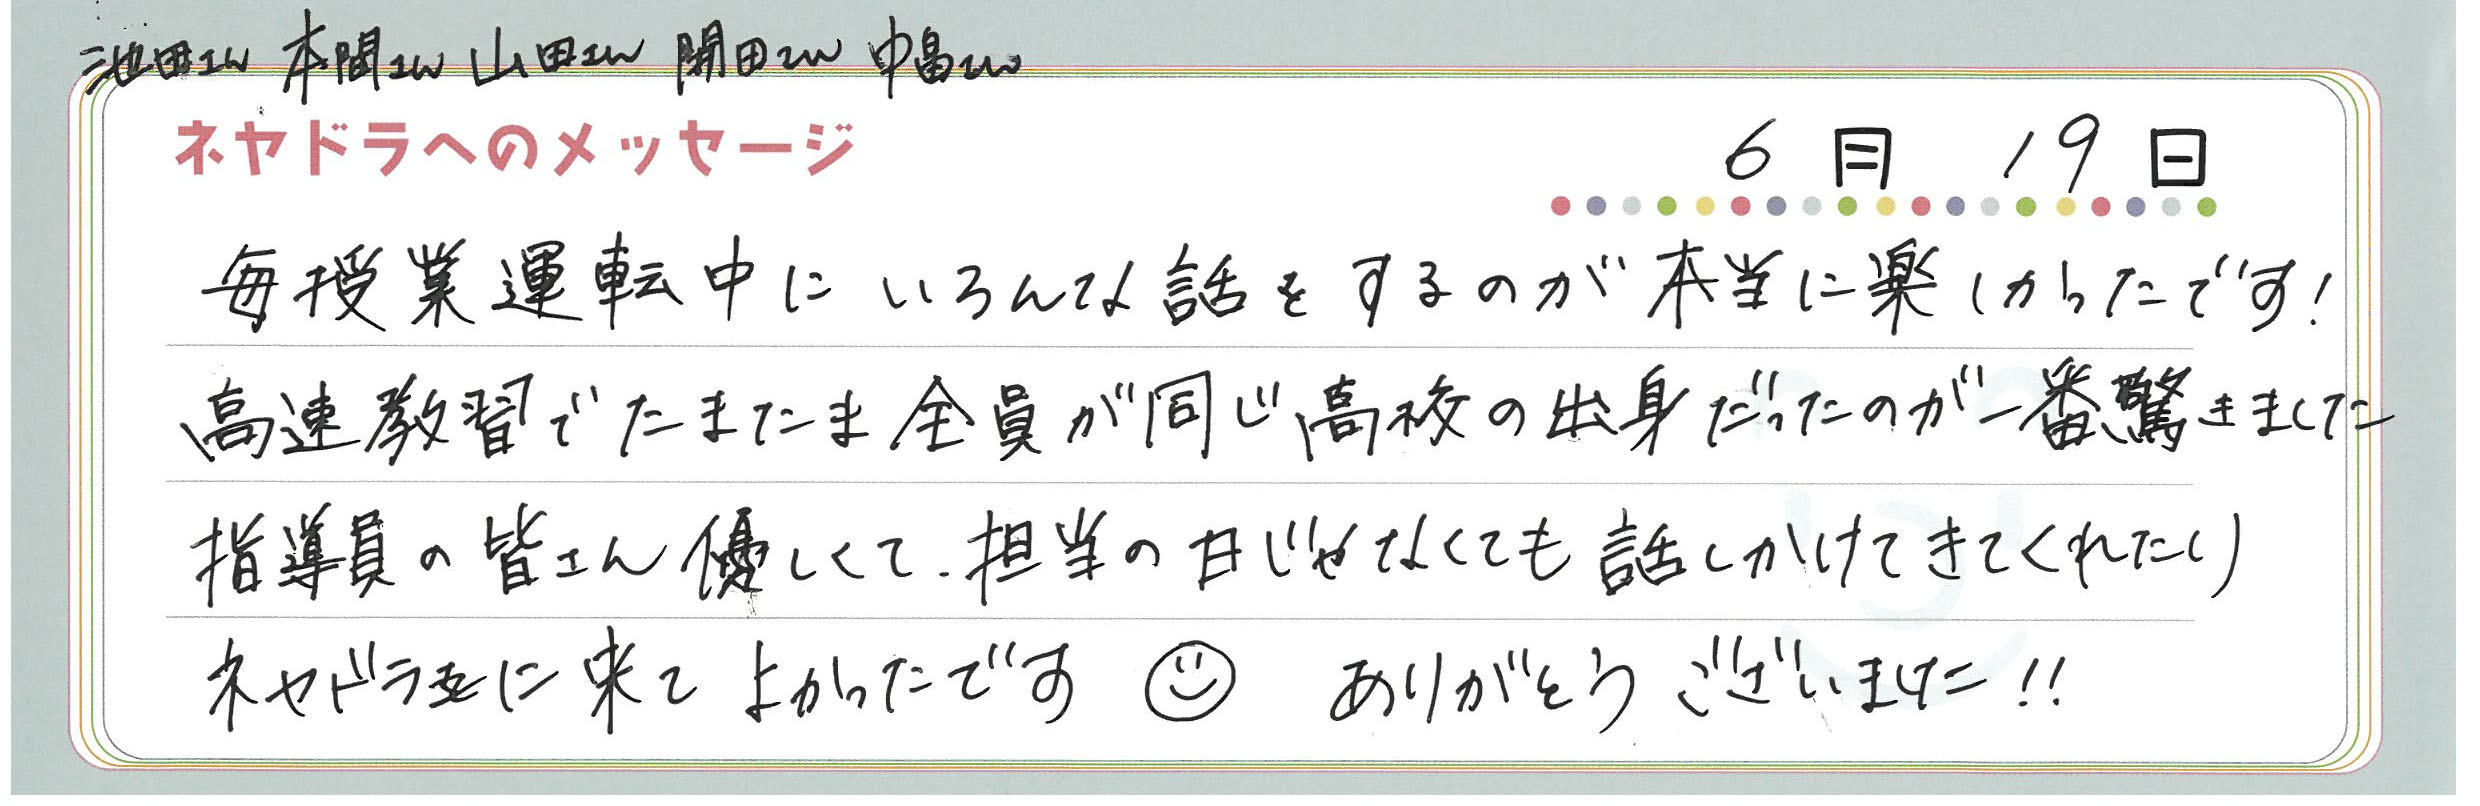 池田さん 本間さん 山田さん 開田さん 中畠さん
ネヤドラへのメッセージ
6月 19日
毎授業運転中にいろんな話をするのが本当に楽しかったです!
高速教習でたまたま全員が同じ高校の出身だったのが一番驚きました
指導員の皆さん優しくて、担当の日じゃなくても話しかけてきてくれたり
ネヤドラに来てよかったです ありがとうございました!!